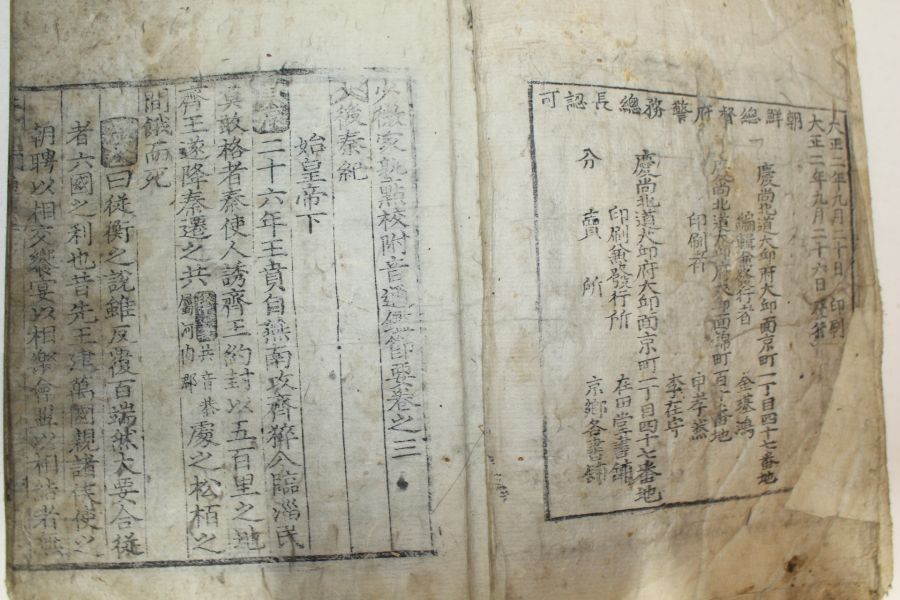 朝鮮總督府警務總長認可
大正二年九月二十日 印刷
大正二年九月二十六日 發行
慶尚北道大邱府大邱面京町一丁目四十七番地
編輯兼發行者 金璂鴻
慶尚北道大邱府大邱面錦町百十番地
印刷者
李在宇
慶尚北道大邱府大邱面京町一丁目四十七番地
印刷兼發行所 在田堂書鋪
分賣所 京鄉各書鋪
少微家塾點校附音通鑑節要卷之三
後秦紀
始皇帝下
二十六年王賁自燕南攻齊猝入臨淄民
莫敢格者秦使人誘齊王約封以五百里之地
齊王遂降秦遷之共 共音恭 河內郡 處之松柏之
間餓而死
曰從衡之說雖反覆百端然大要合從
者六國之利也昔先王建萬國親諸侯使之
朝聘以相交饗宴以相樂會盟以相結者無